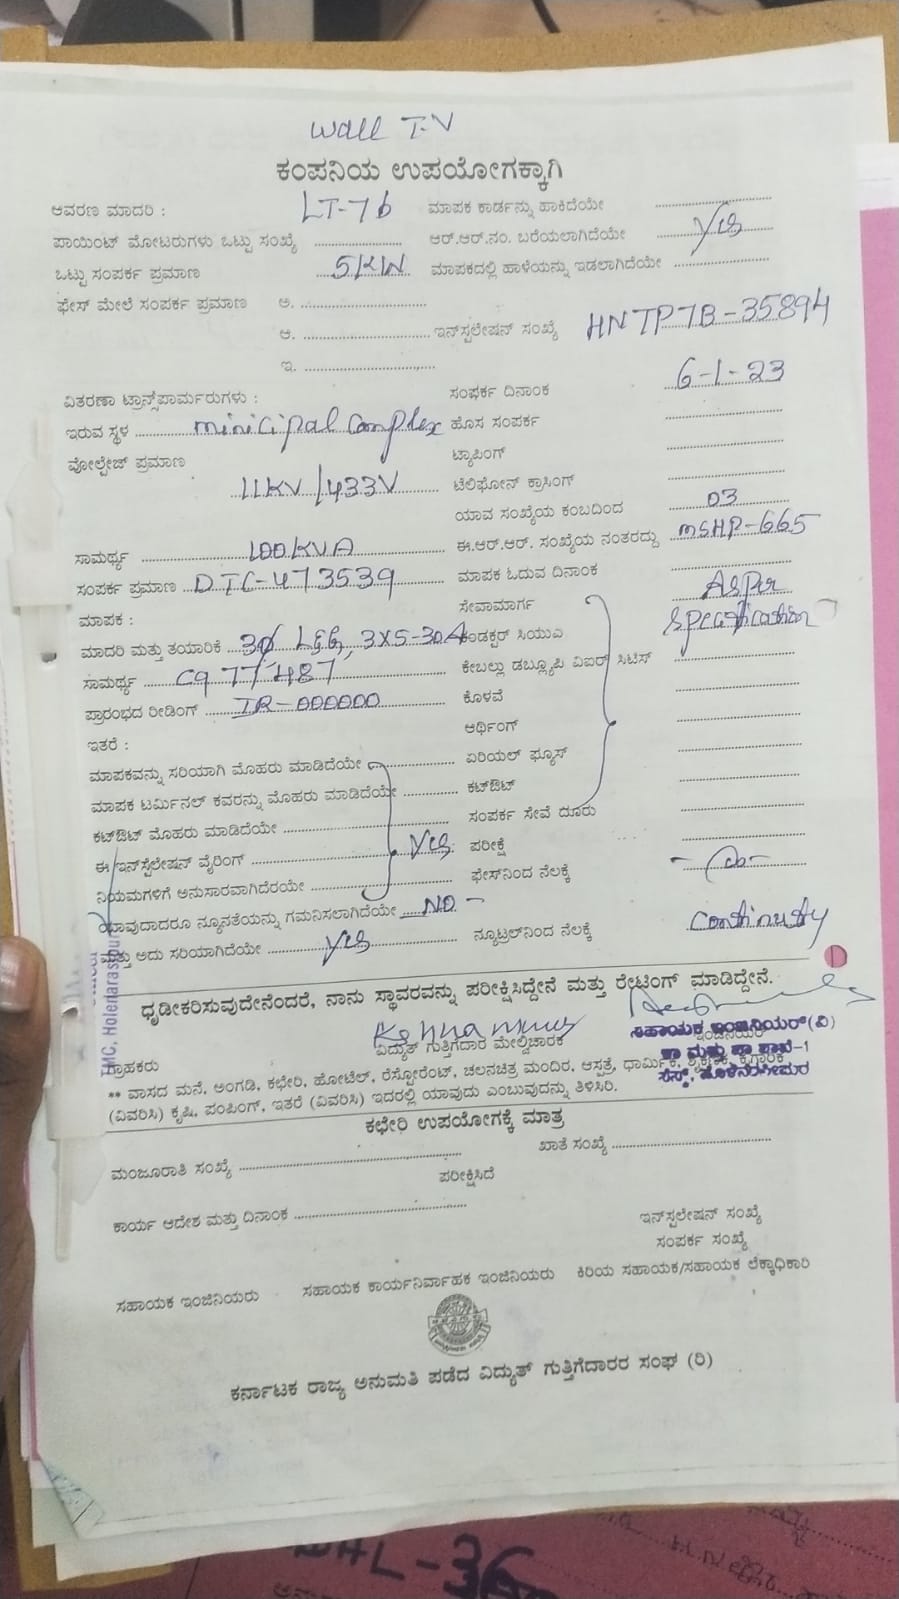 Wall T.V
ಕಂಪನಿಯ ಉಪಯೋಗಕ್ಕಾಗಿ
ಆವರಣ ಮಾದರಿ : LT-7b ಮಾಪಕ ಕಾರ್ಡನ್ನು ಹಾಕಿದೆಯೇ
ಪಾಯಿಂಟ್ ಮೋಟರುಗಳು ಒಟ್ಟು ಸಂಖ್ಯೆ ಆರ್.ಆರ್.ನಂ. ಬರೆಯಲಾಗಿದೆಯೇ Yes
ಒಟ್ಟು ಸಂಪರ್ಕ ಪ್ರಮಾಣ 5KW ಮಾಪಕದಲ್ಲಿ ಹಾಳೆಯನ್ನು ಇಡಲಾಗಿದೆಯೇ
ಫೇಸ್ ಮೇಲೆ ಸಂಪರ್ಕ ಪ್ರಮಾಣ ಅ.
ಆ. ಇನ್‌ಸ್ಟಲೇಷನ್ ಸಂಖ್ಯೆ HNTP7B-35894
ಇ.
ವಿತರಣಾ ಟ್ರಾನ್ಸ್‌ಪಾರ್ಮರುಗಳು : ಸಂಪರ್ಕ ದಿನಾಂಕ 6-1-23
ಇರುವ ಸ್ಥಳ minicipal complex ಹೊಸ ಸಂಪರ್ಕ
ವೋಲ್ಟೇಜ್ ಪ್ರಮಾಣ ಟ್ಯಾಪಿಂಗ್
11KV/433V ಟೆಲಿಫೋನ್ ಕ್ರಾಸಿಂಗ್
ಯಾವ ಸಂಖ್ಯೆಯ ಕಂಬದಿಂದ 03
ಸಾಮರ್ಥ್ಯ 100KVA ಈ.ಆರ್.ಆರ್. ಸಂಖ್ಯೆಯ ನಂತರದ್ದು MSHP-665
ಸಂಪರ್ಕ ಪ್ರಮಾಣ DTC-473539 ಮಾಪಕ ಓದುವ ದಿನಾಂಕ
ಮಾಪಕ : ಸೇವಾಮಾರ್ಗ As per
ಮಾದರಿ ಮತ್ತು ತಯಾರಿಕೆ 3Ø L&G, 3X5-30A ಕಂಡಕ್ಟರ್ ಸಿಯುವಿ specification
ಸಾಮರ್ಥ್ಯ ಕೇಬಲ್ಲು ಡಬ್ಲ್ಯೂಪಿ ವಿಐರ್ ಸಿಟಿಸ್
ಪ್ರಾರಂಭದ ರೀಡಿಂಗ್ IR-000000 ಕೊಳವೆ
ಇತರೆ : ಆರ್ಥಿಂಗ್
ಮಾಪಕವನ್ನು ಸರಿಯಾಗಿ ಮೊಹರು ಮಾಡಿದೆಯೇ ಏರಿಯಲ್ ಫ್ಯೂಸ್
ಮಾಪಕ ಟರ್ಮಿನಲ್ ಕವರನ್ನು ಮೊಹರು ಮಾಡಿದೆಯೇ ಕಟ್‌ಔಟ್
ಕಟ್‌ಔಟ್ ಮೊಹರು ಮಾಡಿದೆಯೇ ಸಂಪರ್ಕ ಸೇವೆ ದೂರು
ಈ ಇನ್‌ಸ್ಟಲೇಷನ್ ವೈರಿಂಗ್ Yes ಪರೀಕ್ಷೆ
ನಿಯಮಗಳಿಗೆ ಅನುಸಾರವಾಗಿದೆರಯೇ ಫೇಸ್‌ನಿಂದ ನೆಲಕ್ಕೆ
ಯಾವುದಾದರೂ ನ್ಯೂನತೆಯನ್ನು ಗಮನಿಸಲಾಗಿದೆಯೇ NO -
ಮತ್ತು ಅದು ಸರಿಯಾಗಿದೆಯೇ Yes ನ್ಯೂಟ್ರಲ್‌ನಿಂದ ನೆಲಕ್ಕೆ Continuty
TMC, Holenarasipura
ಧೃಡೀಕರಿಸುವುದೇನೆಂದರೆ, ನಾನು ಸ್ಥಾವರವನ್ನು ಪರೀಕ್ಷಿಸಿದ್ದೇನೆ ಮತ್ತು ರೇಟಿಂಗ್ ಮಾಡಿದ್ದೇನೆ.
ಗ್ರಾಹಕರು ವಿದ್ಯುತ್ ಗುತ್ತಿಗೆದಾರ ಮೇಲ್ವಿಚಾರಕ ಸಹಾಯಕ ಇಂಜಿನಿಯರ್(ವಿ)
** ವಾಸದ ಮನೆ, ಅಂಗಡಿ, ಕಛೇರಿ, ಹೋಟೆಲ್, ರೆಸ್ಟೋರೆಂಟ್, ಚಲನಚಿತ್ರ ಮಂದಿರ, ಆಸ್ಪತ್ರೆ, ಧಾರ್ಮಿಕ, ಶೈಕ್ಷಣಿಕ, ಕೈಗಾರಿಕೆ
(ವಿವರಿಸಿ) ಕೃಷಿ, ಪಂಪಿಂಗ್, ಇತರೆ (ವಿವರಿಸಿ) ಇದರಲ್ಲಿ ಯಾವುದು ಎಂಬುವುದನ್ನು ತಿಳಿಸಿರಿ.
ಕಛೇರಿ ಉಪಯೋಗಕ್ಕೆ ಮಾತ್ರ
ಮಂಜೂರಾತಿ ಸಂಖ್ಯೆ ಖಾತೆ ಸಂಖ್ಯೆ
ಪರೀಕ್ಷಿಸಿದೆ
ಕಾರ್ಯ ಆದೇಶ ಮತ್ತು ದಿನಾಂಕ ಇನ್‌ಸ್ಪಲೇಷನ್ ಸಂಖ್ಯೆ
ಸಂಪರ್ಕ ಸಂಖ್ಯೆ
ಸಹಾಯಕ ಇಂಜಿನಿಯರು ಸಹಾಯಕ ಕಾರ್ಯನಿರ್ವಾಹಕ ಇಂಜಿನಿಯರು ಕಿರಿಯ ಸಹಾಯಕ/ಸಹಾಯಕ ಲೆಕ್ಕಾಧಿಕಾರಿ
ಕರ್ನಾಟಕ ರಾಜ್ಯ ಅನುಮತಿ ಪಡೆದ ವಿದ್ಯುತ್ ಗುತ್ತಿಗೆದಾರರ ಸಂಘ (ರಿ)